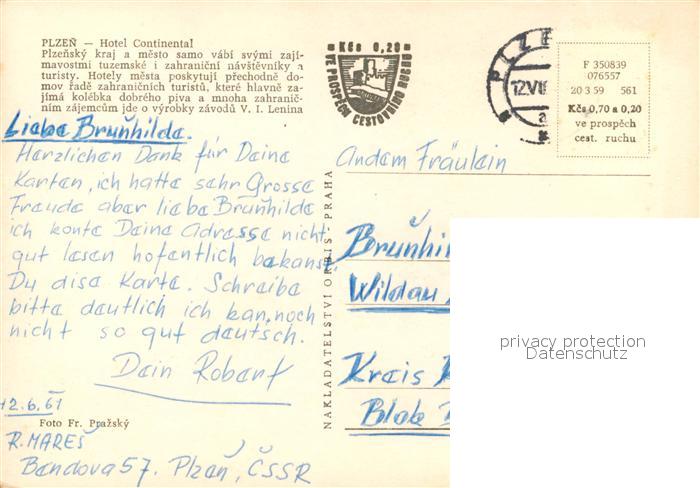 PLZEŇ — Hotel Continental
Plzeňský kraj a město samo vábí svými zají-
mavostmi tuzemské i zahraniční návštěvníky a
turisty. Hotely města poskytují přechodně do-
mov řadě zahraničních turistů, které hlavně za-
jímá kolébka dobrého piva a mnoha zahranič-
ním zájemcům jde o výrobky závodů V. I. Lenina
Liebe Bruňhilde.
Herzlichen Dank für Deine
Karten, ich hatte sehr Grosse
Freude aber liebe Bruňhilde
ich konte Deine Adresse nicht
gut lesen hofentlich bekanst
Du dise Karte. Schreibe
bitte deutlich ich kan noch
nicht so gut deutsch.
Dein Robert
12.6.61
Foto Fr. Pražský
R. MAREŠ
Bendova 57. Plzeň, ČSSR
NAKLADATELSTVÍ ORBIS - PRAHA
Kčs 0,20
VE PROSPĚCH CESTOVNÍHO RUCHU
PLZE
12.VI
a
F 350839
076557
20 3 59 561
Kčs 0,70 a 0,20
ve prospěch
cest. ruchu
Andem Fräulein
Bruňhil
Wildau
Kreis K
Blok
privacy protection
Datenschutz